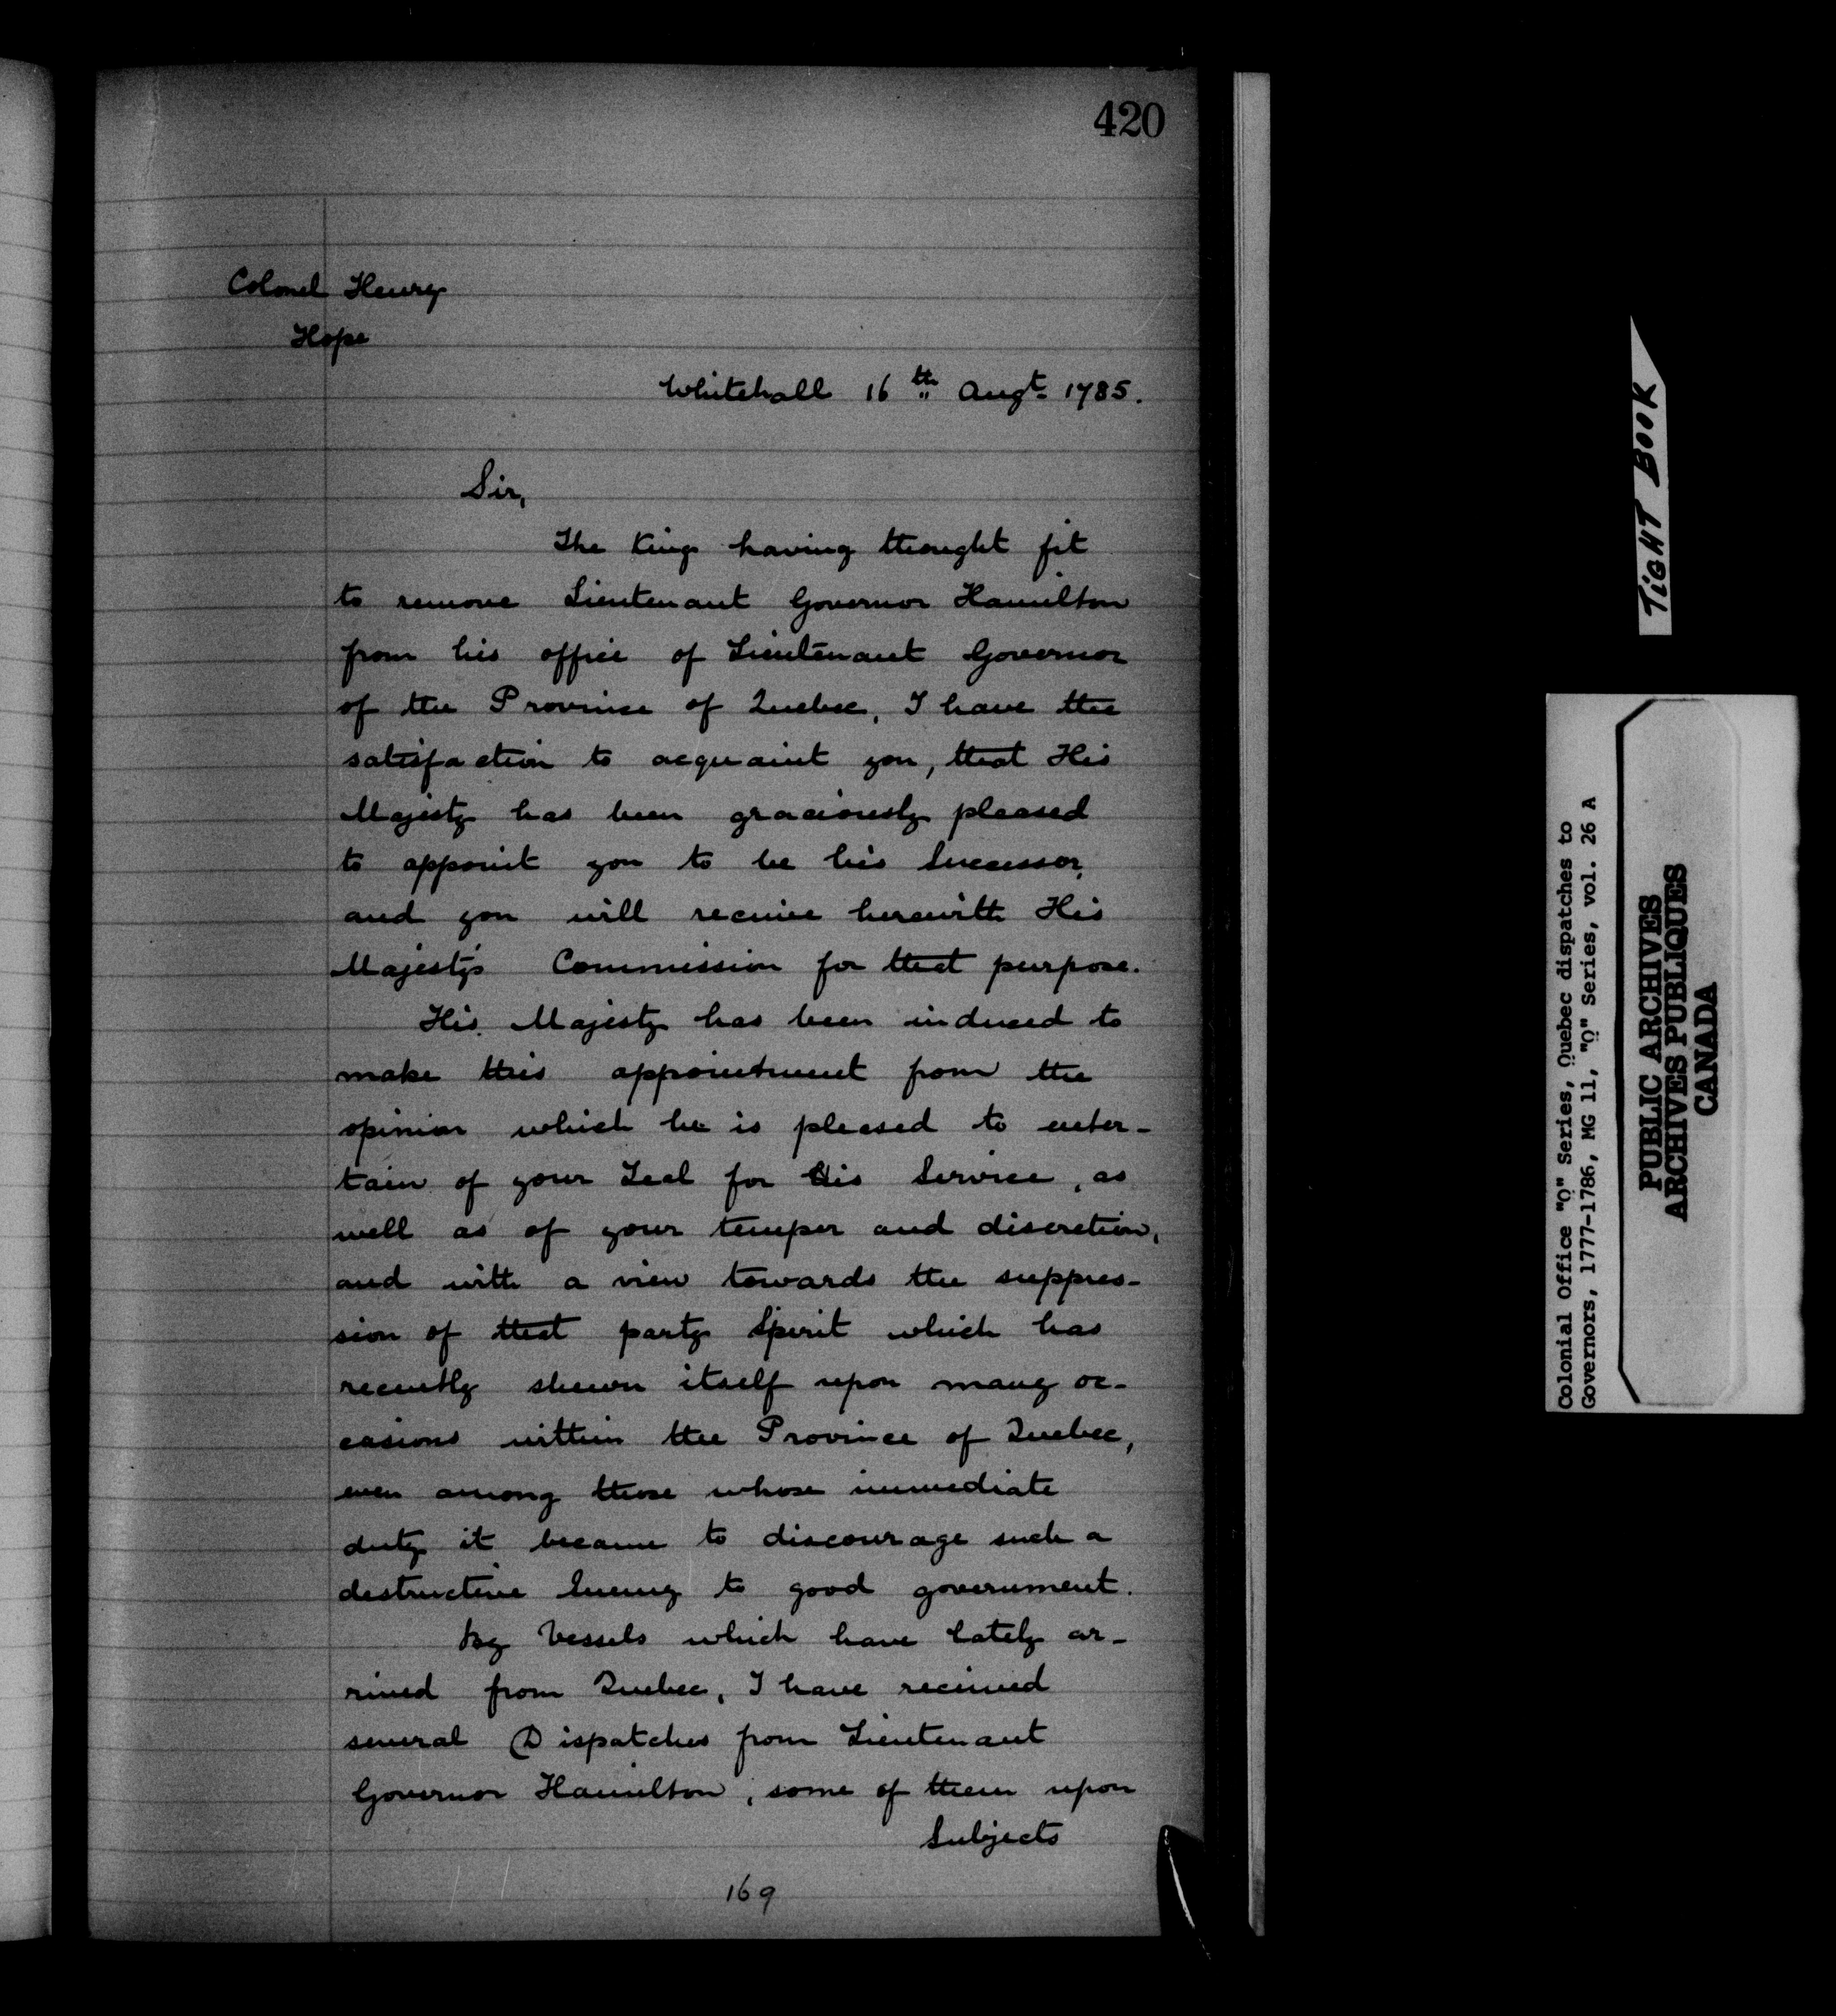 420
Colonel Henry
Hope
Whitehall 16th Augt 1785.
Sir,
The King having thought fit
to remove Lieutenant Governor Hamilton
from his office of Lieutenant Governor
of the Province of Quebec, I have the
satisfaction to acquaint you, that His
Majesty has been graciously pleased
to appoint you to be his Successor,
and you will receive herewith His
Majesty's Commission for that purpose.
His Majesty has been induced to
make this appointment from the
opinion which he is pleased to enter-
tain of your Zeal for His Service, as
well as of your temper and discretion,
and with a view towards the suppres-
sion of that party Spirit which has
recently shewn itself upon many oc-
casions within the Province of Quebec,
even among those whose immediate
duty it became to discourage such a
destructive Enemy to good government.
By Vessels which have lately ar-
rived from Quebec, I have received
several Dispatches from Lieutenant
Governor Hamilton, some of them upon
Subjects
169
TIGHT BOOK
Colonial Office "Q" Series, Quebec dispatches to
Governors, 1777-1786, MG 11, "Q" Series, vol. 26 A
PUBLIC ARCHIVES
ARCHIVES PUBLIQUES
CANADA